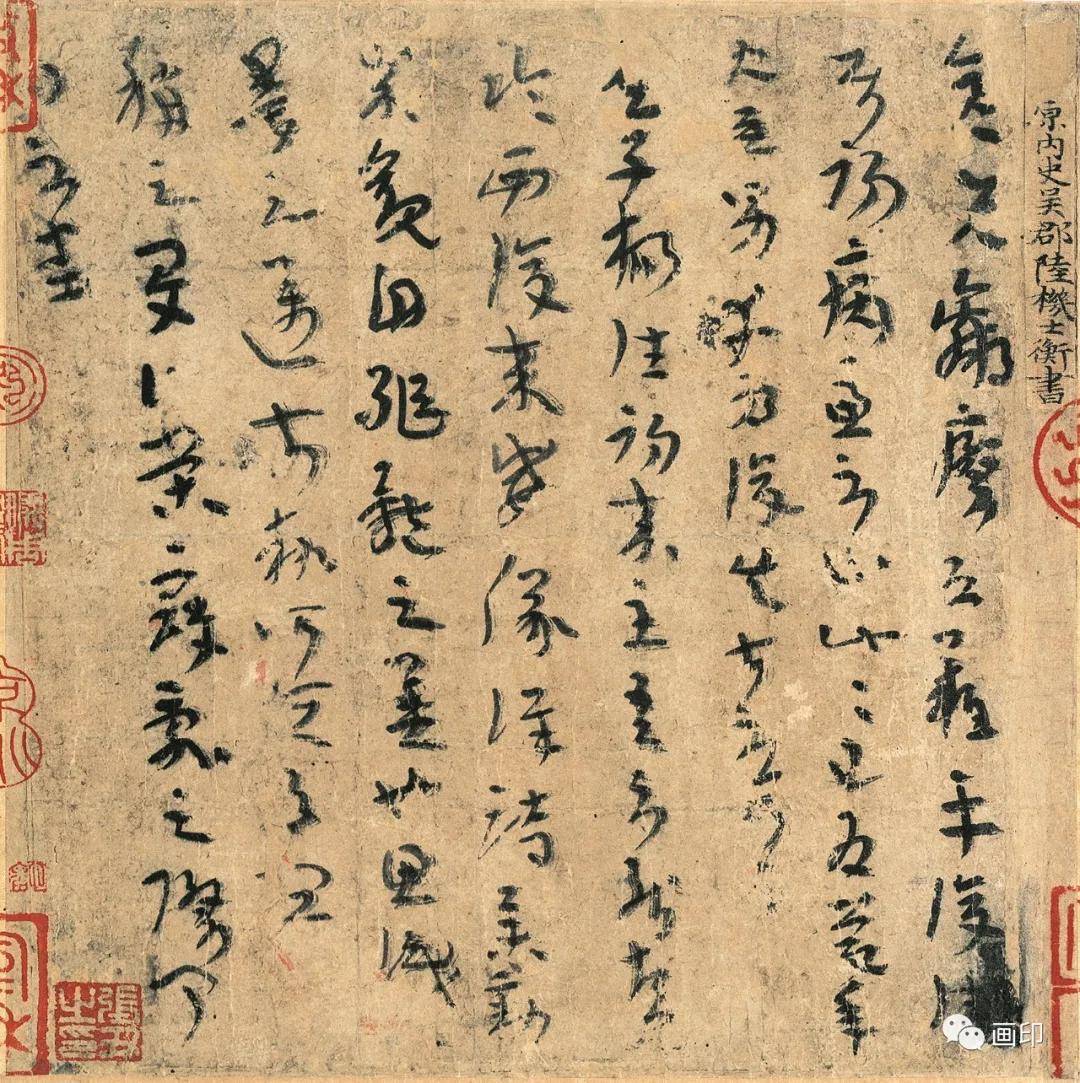 原內史吳郡陸機士衡書
彥先羸瘵恐難平復往
屬初病慮不止此此已為慶承
使唯男幸為復失前憂耳
吳子楊往初來主吾不能盡
臨西復來威儀詳跱舉動
成觀自軀體之美也思識
量之邁前執所恒有宜
稱之夏伯榮寇亂之際聞
問不悉
張丑之印
画印